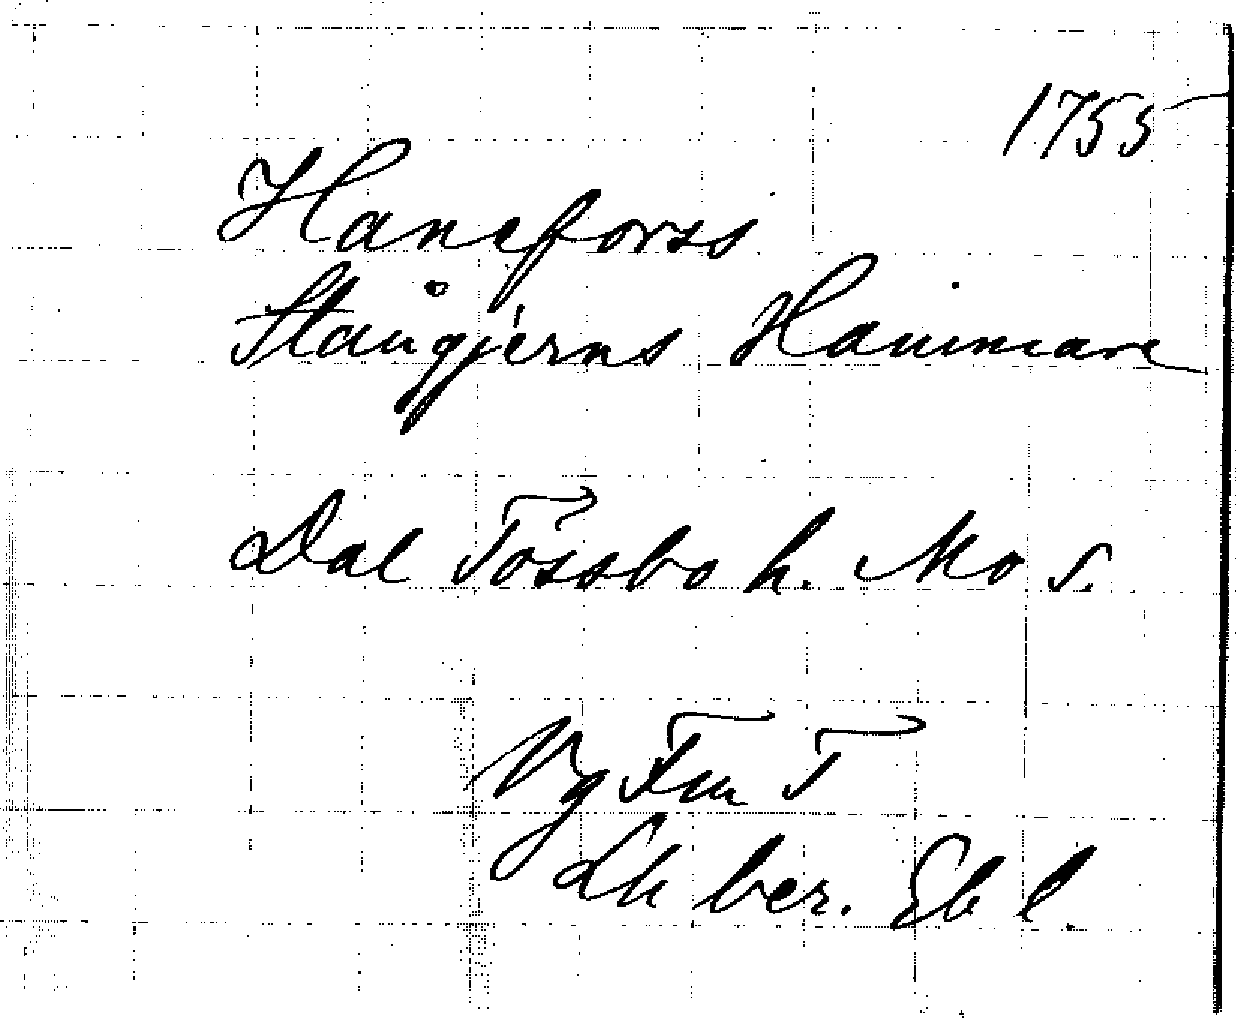 1755
Haneforss
Stångjerns Hammare
Dal Tössbo h. Mo s.
Vg Fm T
Lh ber. Eb l.